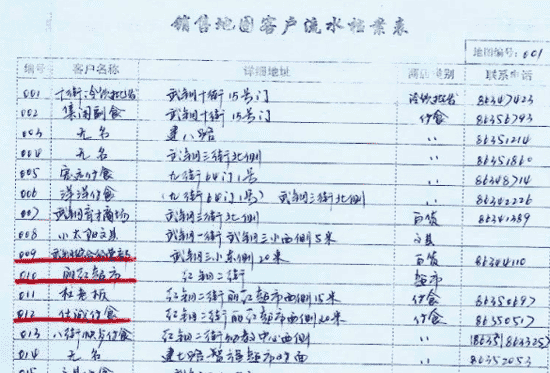 销售地图客户流水档案表
地图编号: 001
编号 客户名称 详细地址 商店类别 联系电话
001 十街冷饮批发 武钢十街15号门 冷饮批发 86347423
002 集团副食 武钢十街15号门 付食 86356793
003 无名 建八路 〃 86351214
004 无名 武钢三街北侧 〃 86351860
005 付食 九街64门1号 〃 86348714
006 洋洋付食 (九街64门1号) 武钢三街北侧 〃 86342226
007 武钢商场 武钢三街北侧 百货 86341389
008 小太阳文具 武钢一街武钢三小西侧5米 文具
009 武钢 武钢三小东侧20米 百货 86344110
010 丽红超市 红钢二街 超市
011 杜老板 红钢二街丽红超市西侧15米 付食 86350697
012 仕诚付食 红钢二街丽红超市西侧20米 付食 86350517
013 八街付食 红钢二街幼教中心西侧 〃
014 无名 建七路超市对面 〃 86352053
015